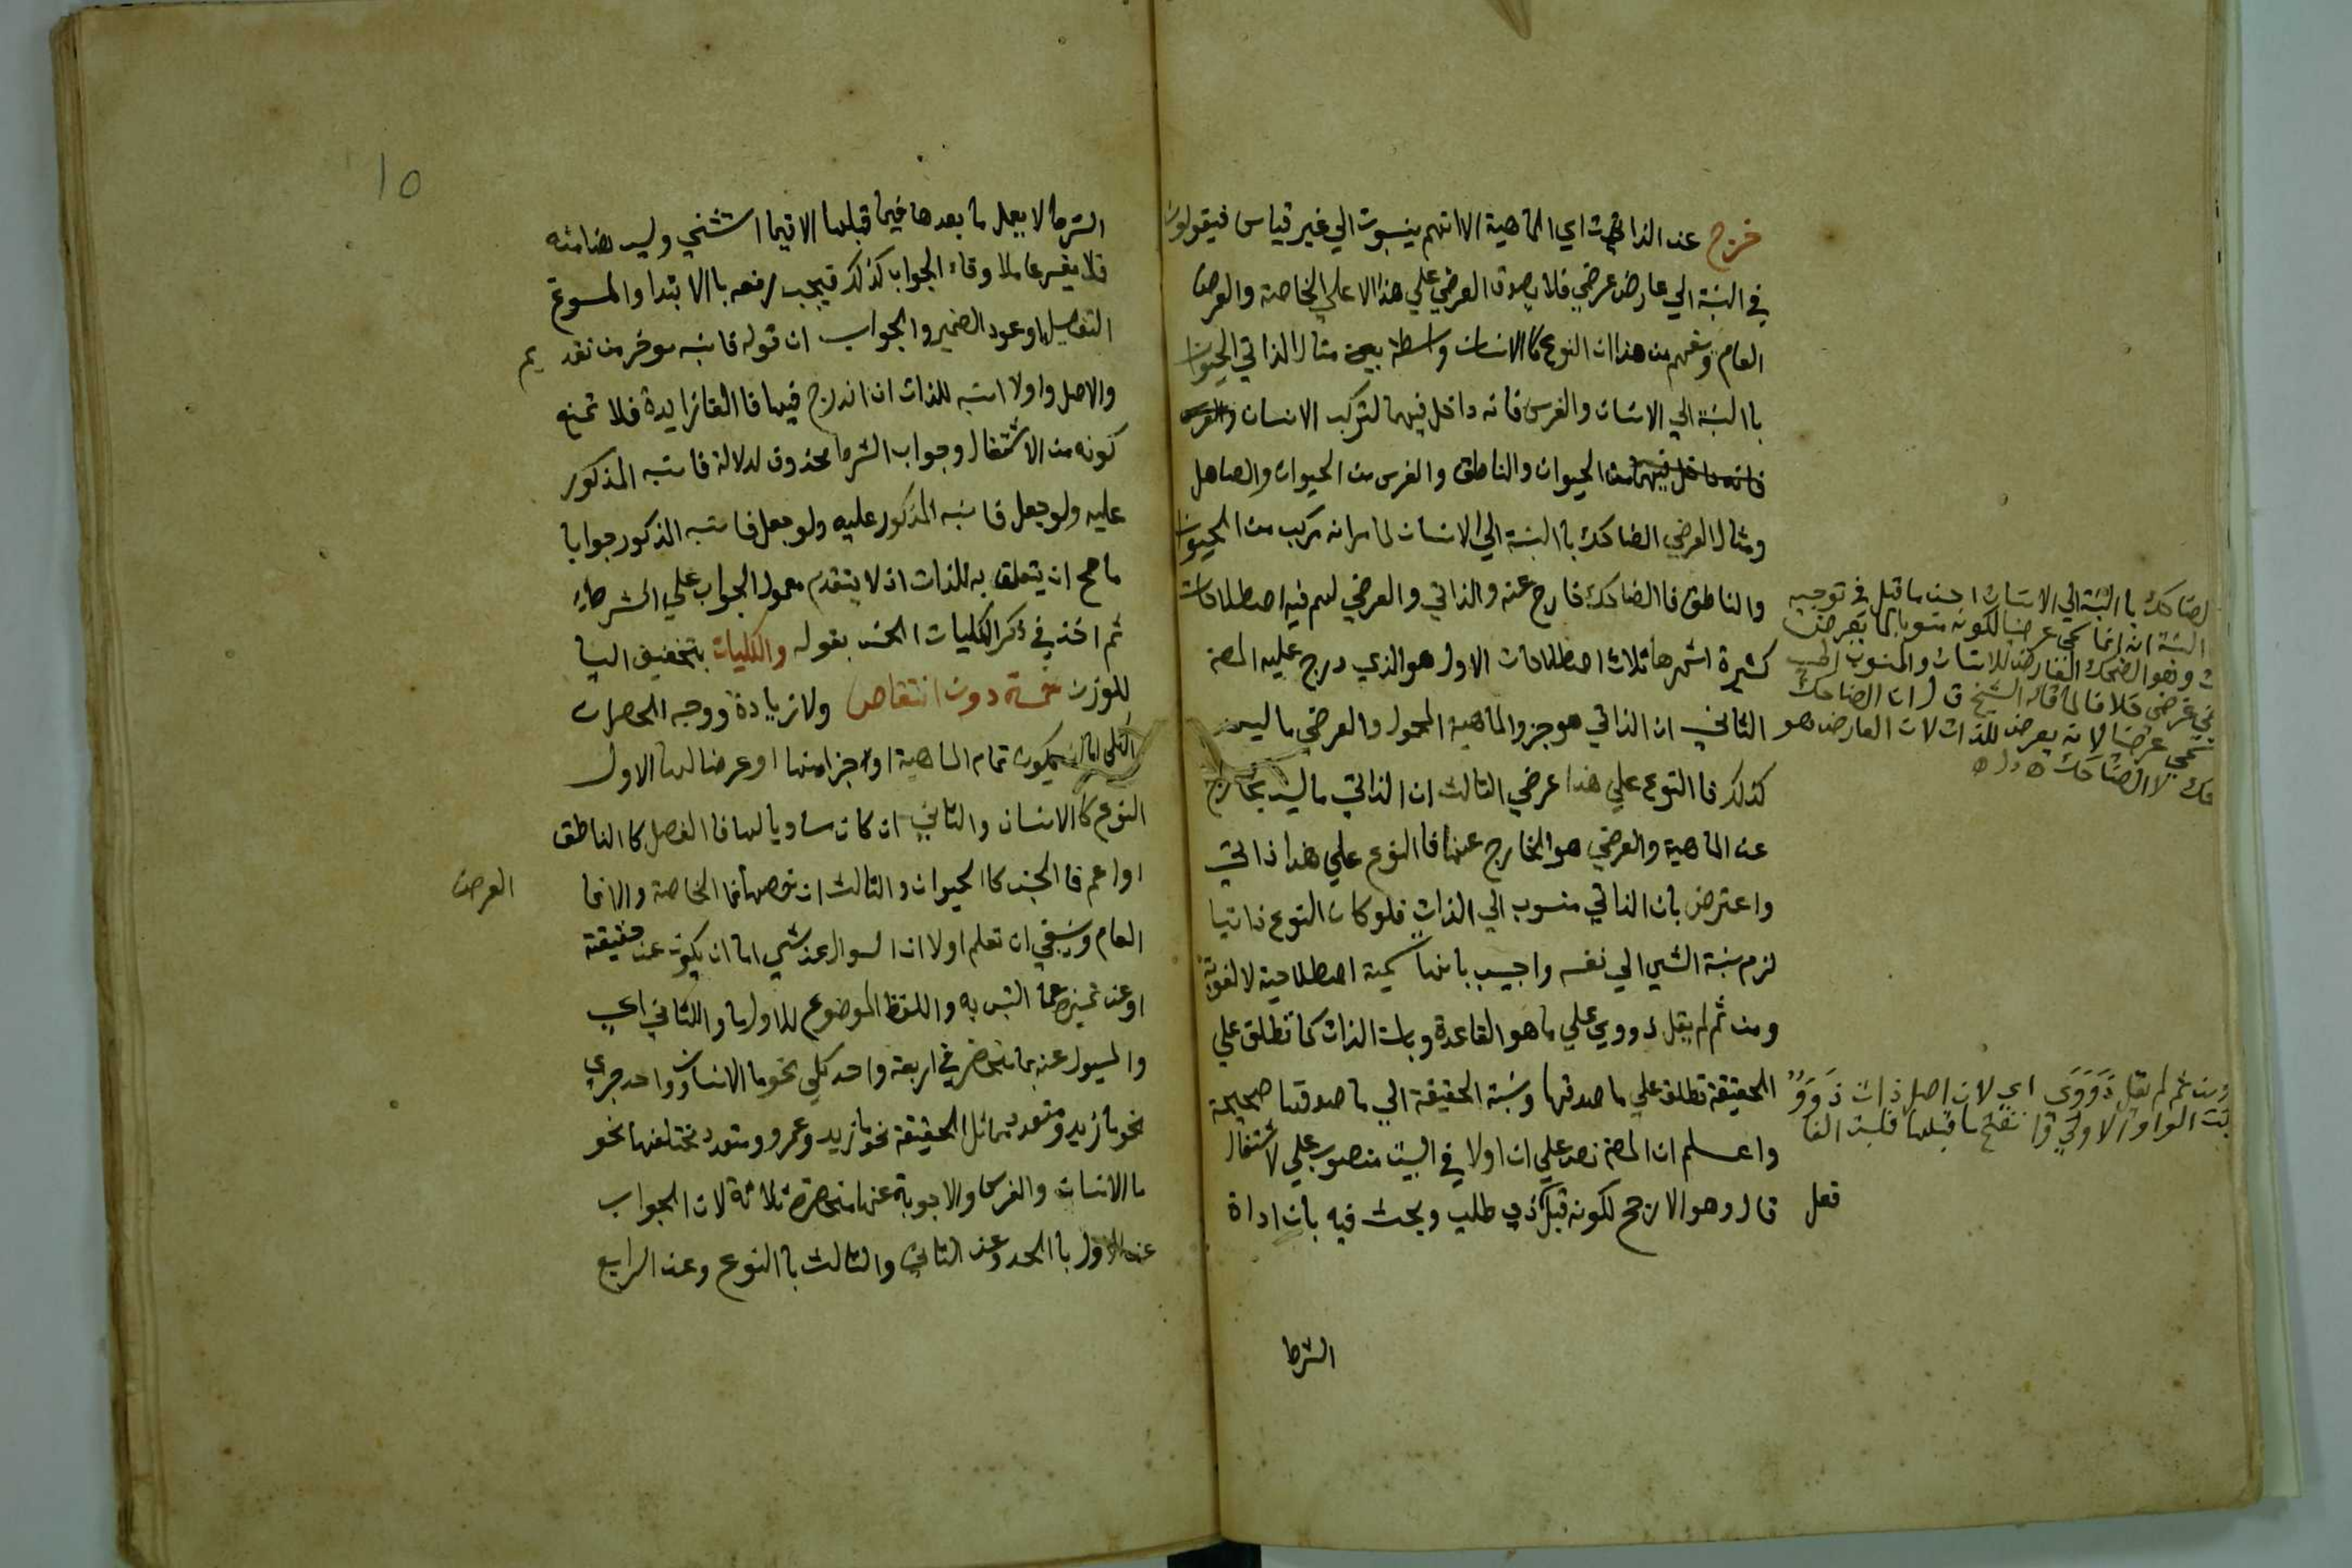 خرج عن الذات اي الماهية الا انهم ينسبون الي غير قياس فيقولون
في النسبة الي عارض عرضي فلا يصدق العرضي علي هذا الا علي الخاصة والعرض
العام وفهم من هذا ان النوع كالانسان واسطة مثال الذاتي الحيوان
با النسبة الي الانسان والفرس فانه داخل فيهما لتركب الانسان والفرس
فانه داخل فيهما من الحيوان والناطق والفرس من الحيوان والصاهل
ومثال العرضي الضاحك با النسبة الي الانسان لما مر انه مركب من الحيوان
والناطق فا الضاحك خارج عنه والذاتي والعرضي لهم فيه اصطلاحات
كثيرة اشهرها ثلاث اصطلاحات الاول هو الذي درج عليه المصن
الثاني ان الذاتي هو جزو الماهية المحمول والعرضي ما ليس
كذلك فا النوع علي هذا عرضي الثالث ان الذاتي ما ليس بخارج
عن الماهية والعرضي هو الخارج عنها فا النوع علي هذا ذاتي
واعترض بان الذاتي منسوب الي الذات فلو كان النوع ذاتيا
لزم نسبة الشي الي نفسه واجيب بانها تسمية اصطلاحية لا لغوية
ومن ثم لم يقل ذووي علي ما هو القاعدة وبان الذات كما تطلق علي
الحقيقة تطلق علي ما صدقها ونسبة الحقيقة الي ما صدقها صحيحة
واعلم ان المصن نص علي ان اولا في البيت منصوب علي الاشتغال
قال وهو الارجح لكونه قبل ذي طلب وبحث فيه بان اداة
فعل
الشرط
الضاحك با النسبة الي الانسان احسن ما قيل في توجيه
النسبة انه انما سمي عرضيا لكونه منسوبا لما يعرض
وهو الضحك العارض للانسان والمنسوب الي
عرضي خلافا لما قاله الشيخ ق ل ان الضاحك
سمي عرضيا لانه يعرض للذات لان العارض هو
حك لا الضاحك
ومن ثم لم يقل ذَوَوَي اي لان اصل ذات ذَوَوٌ
الواو الاولي وانفتح ما قبلها قلبت الفا
١٥
الشرط لا يعمل ما بعدها فيما قبلها الا فيما استثني وليس هذا منه
فلا يفسر عاملا وفاء الجواب كذلك فيجب رفعه بالابتدا والمسوغ
التفصيل او عود الضمير والجواب ان قوله فانسبه موخر من تقديم
والاصل واولا انسبه للذات ان اندرج فيها فا الفا زايدة فلا تمنع
كونه من الاشتغال وجواب الشرط محذوف لدلالة فانسبه المذكور
عليه ولو جعل فانسبه المذكور عليه ولو جعل فانسبه الذكور جوابا
ما صح ان يتعلق به للذات اذ لا يتقدم معمول الجواب علي الشرط
ثم اخذ في ذكر الكليات الخمس بقوله والكليات بتخفيف اليا
للوزن خمسة دون انتقاص ولا زيادة ووجه الحصر ان
الكلي اما ان يكون تمام الماهية او جزا منها او عرضا لها الاول
النوع كا الانسان والثاني ان كان مساويا لها فا الفصل كا الناطق
او اعم فا الجنس كا الحيوان والثالث ان خصها فا الخاصة والا فا
العرض
العام وينبغي ان تعلم اولا ان السوال عن شي اما ان يكون عن حقيقة
او عن تميزه عما التبس به واللفظ الموضوع للاول ما وللثاني اي
والمسيول عنه بما منحصر في اربعة واحد كلي نحو ما الانسان وواحد جزي
نحو ما زيد ومتعدد متماثل الحقيقة نحو ما زيد وعمرو ومتعدد مختلفها نحو
ما الانسان والفرس والاجوبة عنها منحصرة ثلاثة لان الجواب
عن الاول با الحد وعن الثاني والثالث با النوع وعن الرابع